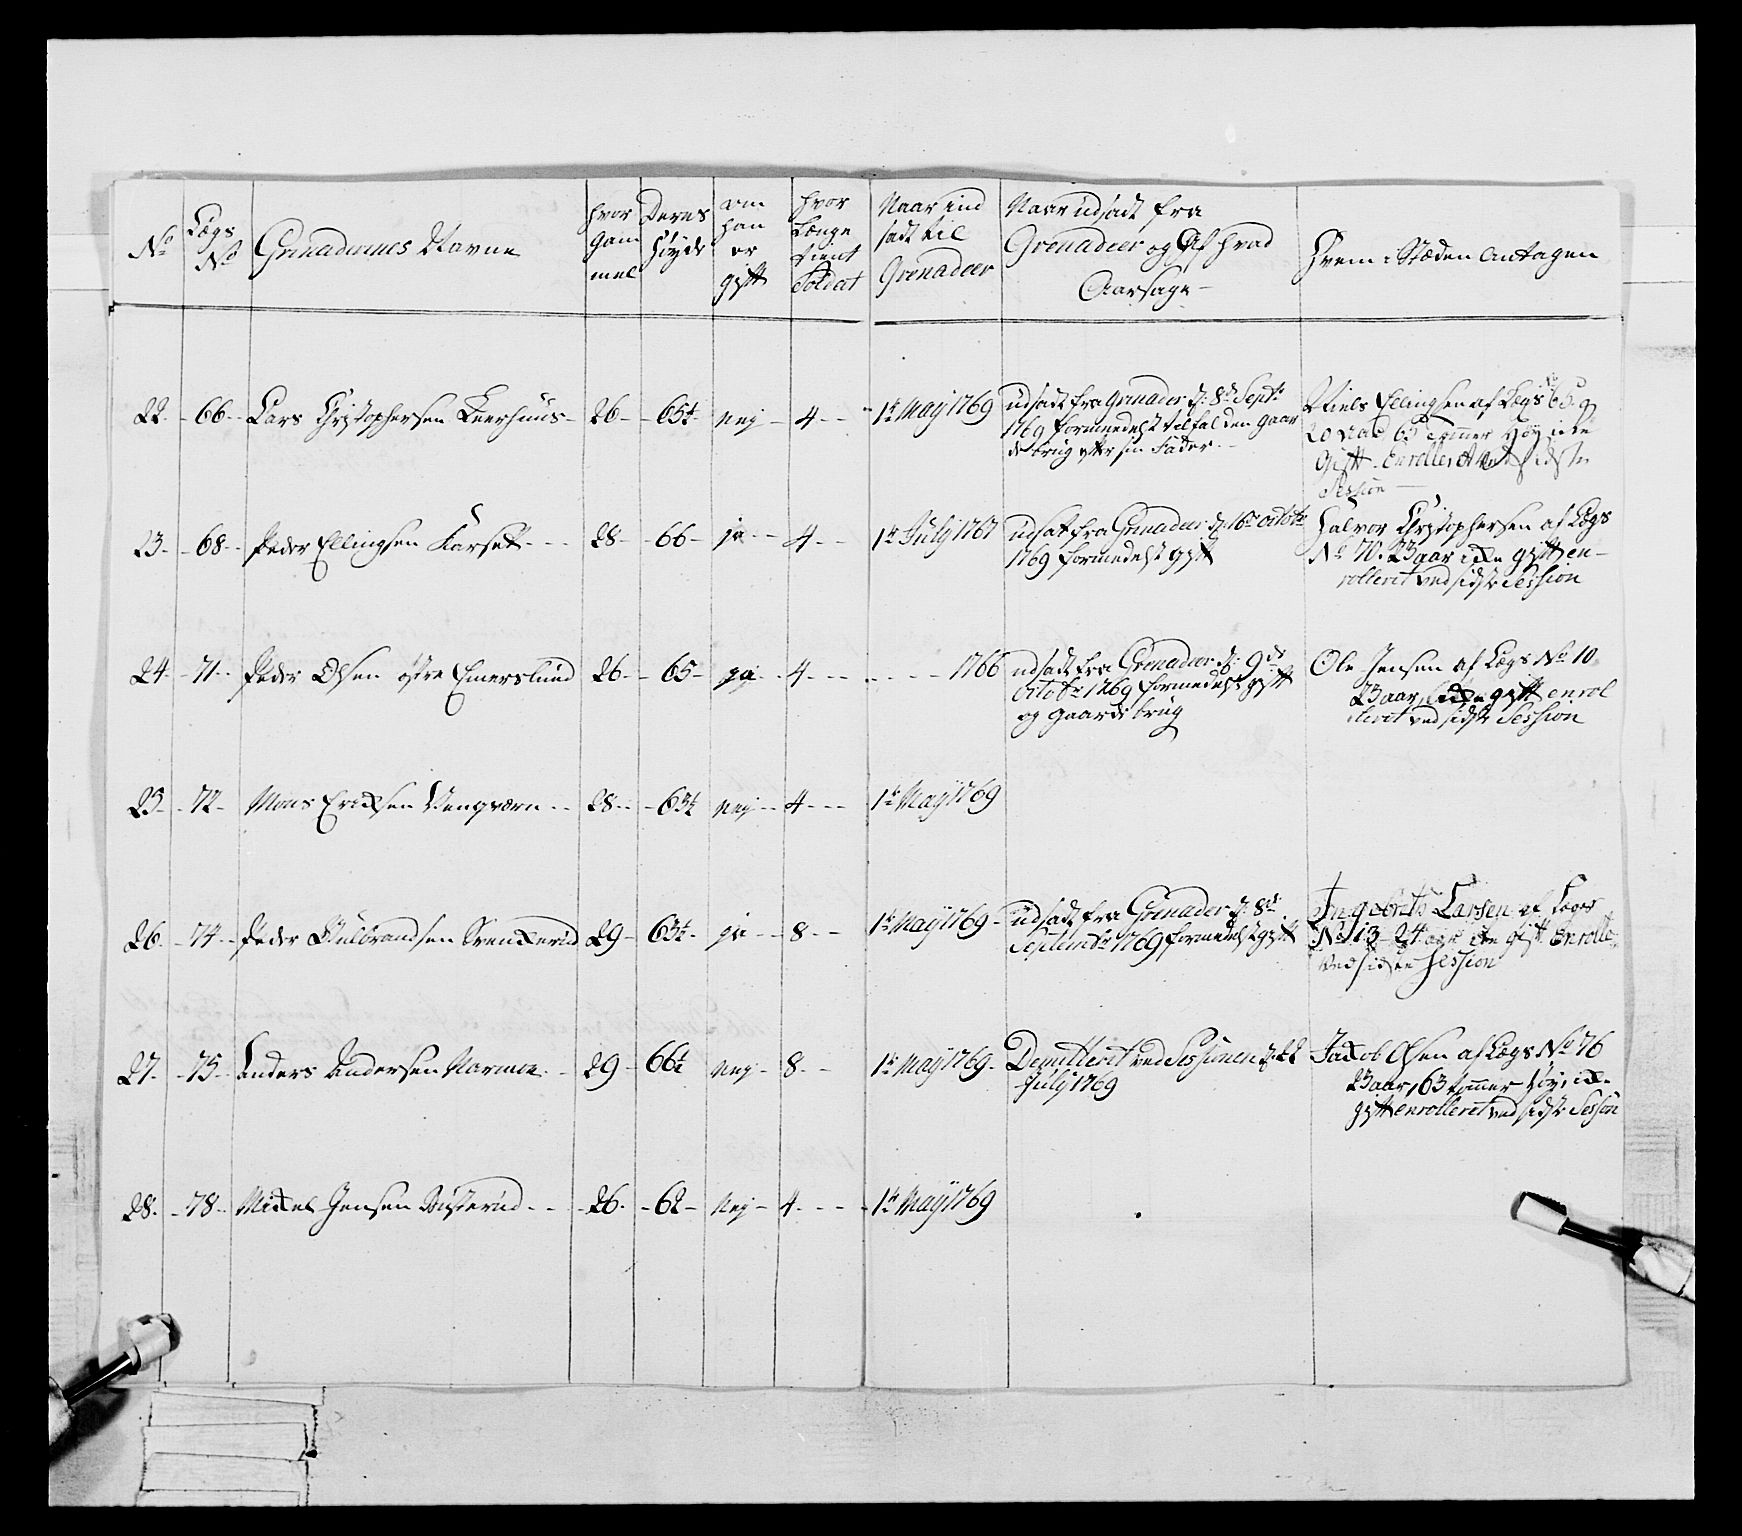 No
Lægs
No
Grenaderernes Navne
hvor
gam
mel
Deres
Høyde
om
han
er
gift
hvor
Længe
tient
Soldat
Naar ind
sadt til
Grenadeer
Naar udsadt fra
Grenadeer og Af hvad
Aarsage
Hvem i Stæden Antagen
22 - 66 - Lars Christophersen Leerhuus - 26 - 65½ - Nej - 4 - 1te May 1769
udsadt fra Grenadeer d. 8de Septbr
1769 formedelst tilfalden Gaar
de brug efter sin Fader
Niels Ellingsen af Lægs 65
20 aar 63 tommer Høy icke
Gift Enrolleret ved sidste
Session
23 - 68 - Peder Ellingsen Karset - 28 - 66 - ja - 4 - 1te July 1767
udsat fra Grenadeer d. 16de octobr
1769 formedelst gift
Halvor Christophersen af Lægs
No 70. 23 aar icke gift en-
rolleret ved sidste Session
24 - 71 - Peder Olsen østre Emerslund 26 - 65 - ja - 4 - 1766
udsadt fra Grenadeer d. 9de
Octobr 1769 formedelst gift
og Gaards brug
Ole Jensen af Lægs No 10
23 aar, icke gift enrol
leret ved sidste Session
25 - 72 - Mons Ericksen - 28 - 63½ Nej - 4 - 1te May 1769
26 - 74 - Peder Gulbrandsen Svenkerud 29 - 63½ - ja - 8 - 1te May 1769 -
udsadt fra Grenadeer d. 8de
Septembr 1769 formedelst gift
Ingebreth Larsen af Lægs
No 13 - 24 aar icke gift Enrolle
ved sidste Session
27 - 75 - Anders Andersen - 29 - 66½ Nej - 8 - 1te May 1769 -
Demitteret ved Sessionen d. 22
July 1769
Jackob Olsen af Lægs No 76
23 aar, 63 tommer Høy, icke
gift enrolleret ved sidste Session
28 - 78 - Mickel Jensen - 26 - 62 - Nej - 4 - 1te May 1769